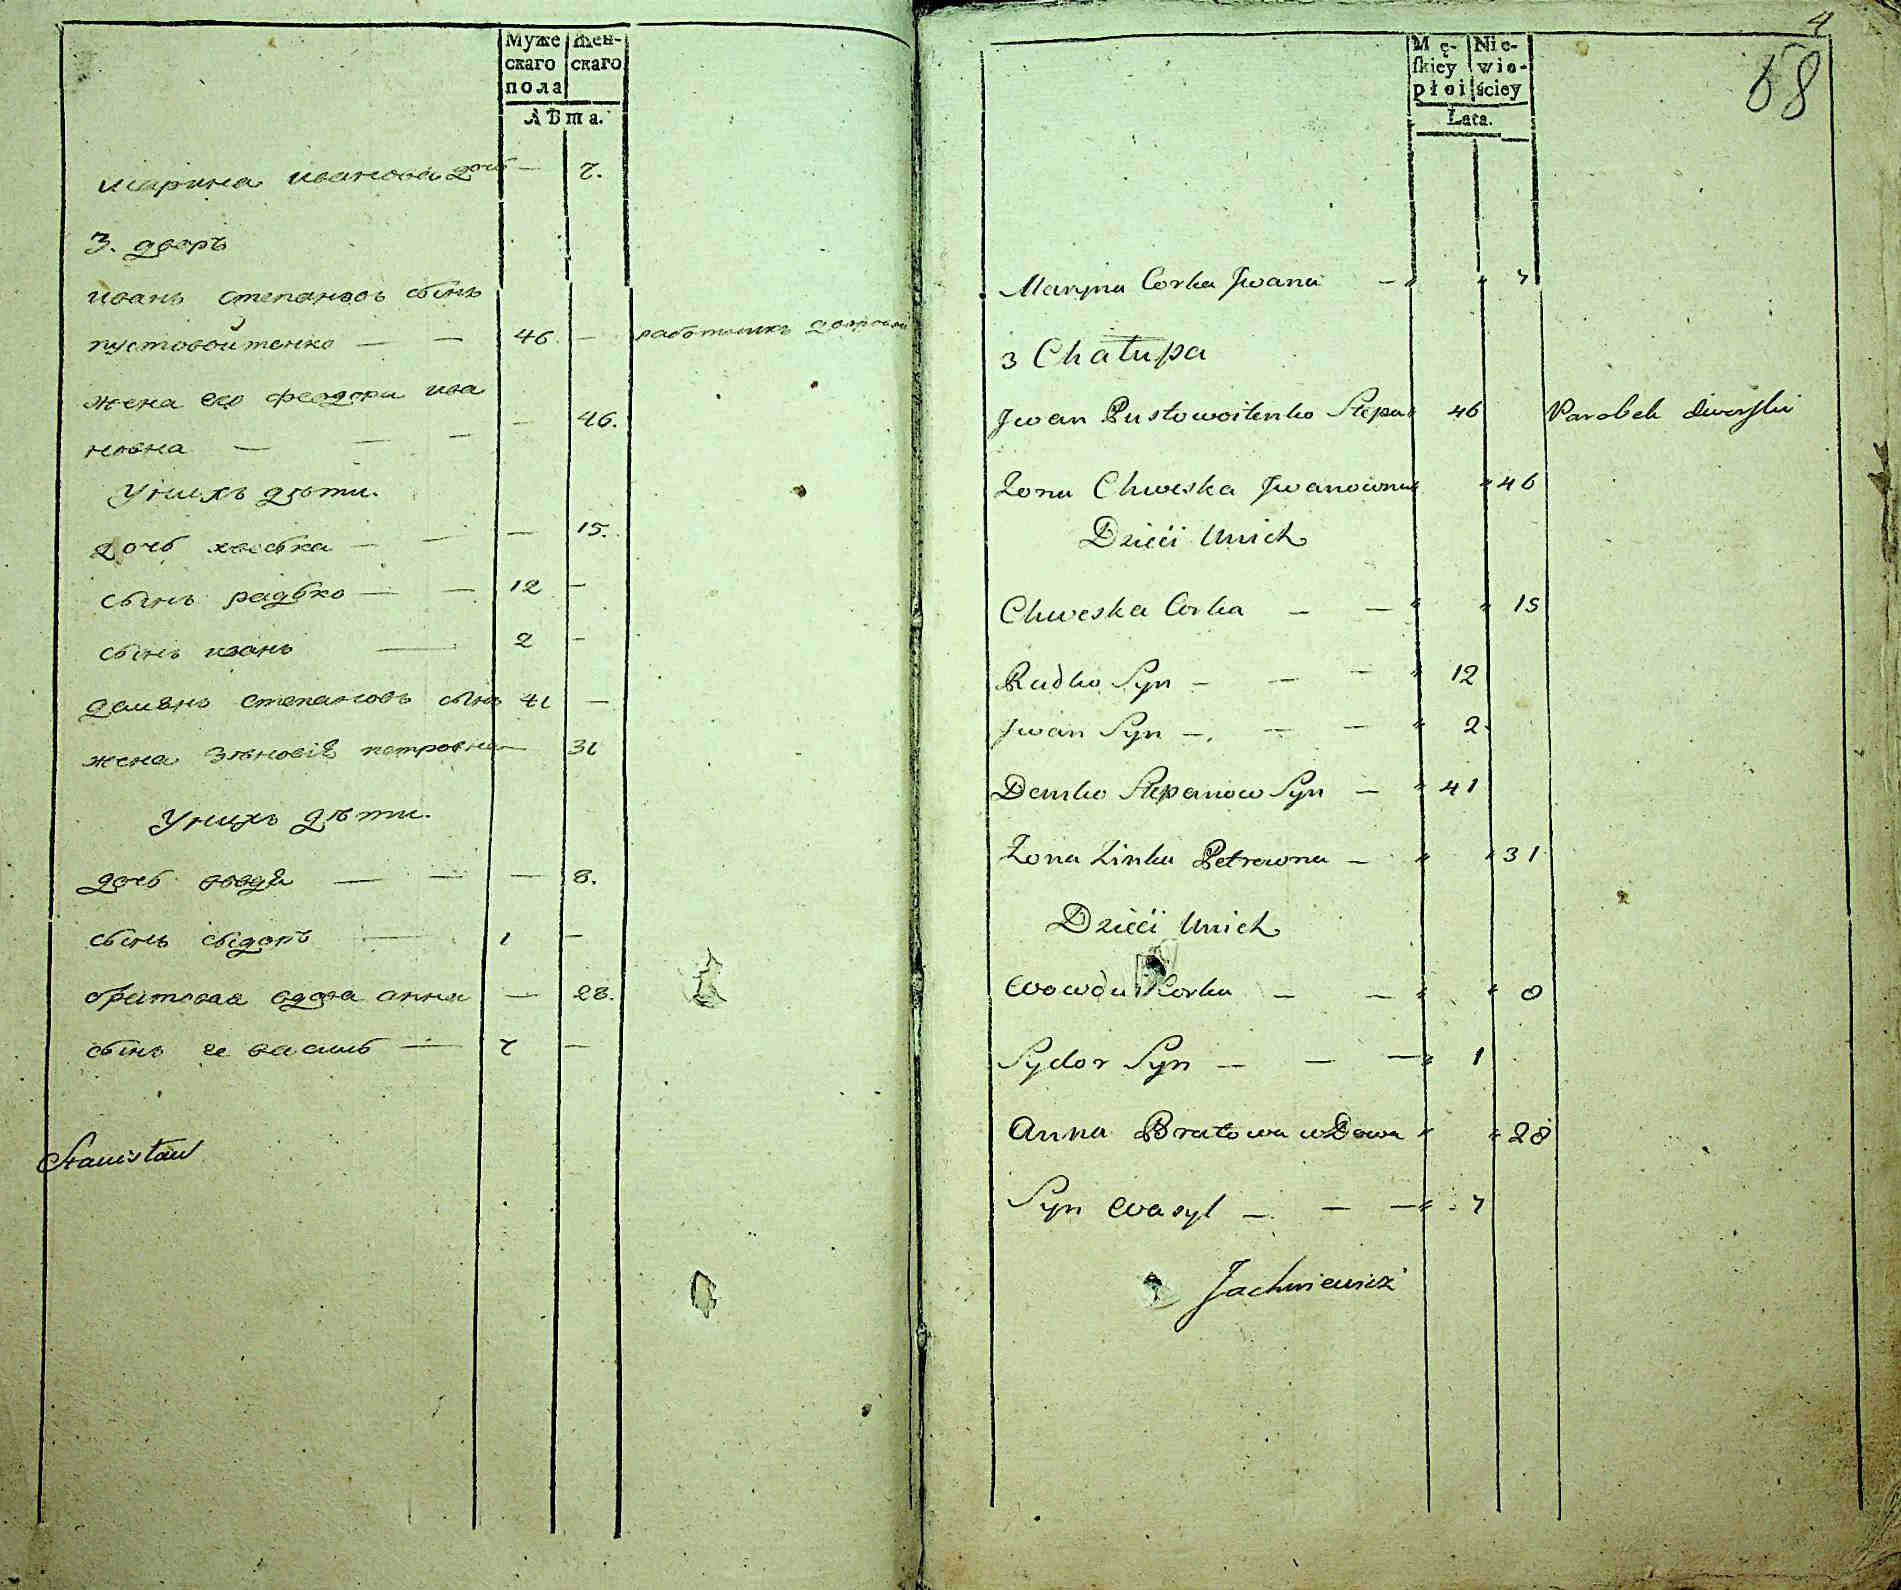 Муже Жен-
скаго скаго
пола
Лѣта.
марина иванова дочь — 7.
3. дворъ
иванъ степановъ сынъ
пустовойтенко — — 46 — работникъ дворовой
жена его феодора ива
новна — — — — 46.
У нихъ дѣти.
дочь хвеська — — — 15.
сынъ радько — — 12 —
сынъ иванъ — 2 —
демянъ степановъ сынъ 41 —
жена зѣновія петровна — 31
У нихъ дѣти.
дочь вовдя — — — 8.
сынъ сыдоръ — 1 —
братовая вдова анна — 28.
сынъ ее василь — 7 —
Stanisław
4
68
Mę- Nie-
skiey wie-
płci ściey
Lata.
Maryna Corka Jwana — " " 7
3 Chałupa
Jwan Pustowoitenko Stepan 46 Parobek dworski
Zona Chweska Jwanowna " 46
Dzieći Unich
Chweska Corka — — " " 15
Radko Syn — — — " 12
Jwan Syn — — — " 2
Demko Stepanow Syn — " 41
Zona Zinka Petrowna — " " 31
Dzieći Unich
Wowda Corka — — " " 8
Sydor Syn — — — " 1
Anna Bratowa wDowa " " 28
Syn Wasyl — — — " 7
Jachniewicz